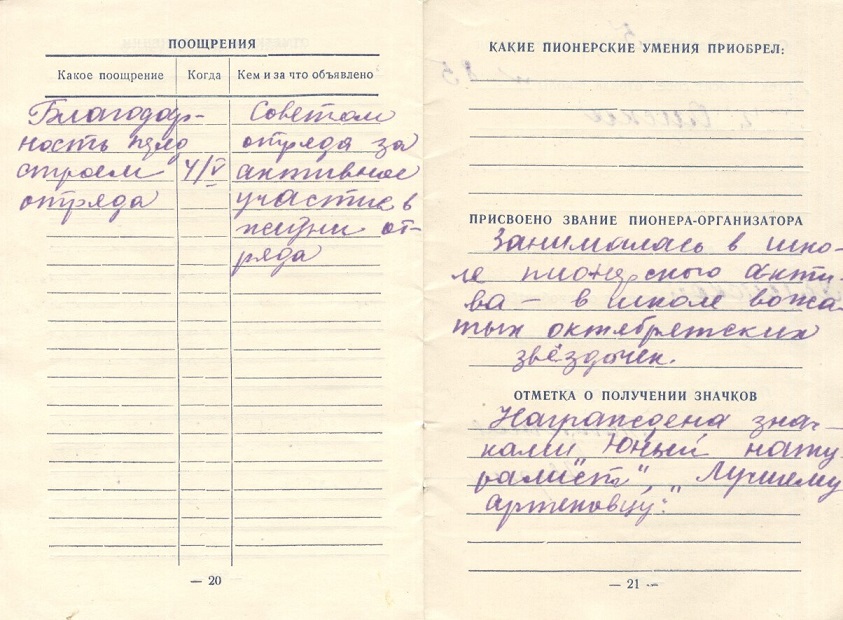 ПООЩРЕНИЯ
Какое поощрение Когда Кем и за что объявлено
Благодар- Советом
ность перед отряда за
строем 4/V активное
отряда участие в
жизни от-
ряда
— 20
КАКИЕ ПИОНЕРСКИЕ УМЕНИЯ ПРИОБРЕЛ:
ПРИСВОЕНО ЗВАНИЕ ПИОНЕРА-ОРГАНИЗАТОРА
Занималась в шко-
ле пионерского акти-
ва – в школе вожа-
тых октябрятских
звёздочек.
ОТМЕТКА О ПОЛУЧЕНИИ ЗНАЧКОВ
Награждена знач-
ками "Юный нату-
ралист", "Лучшему
артековцу."
— 21 —